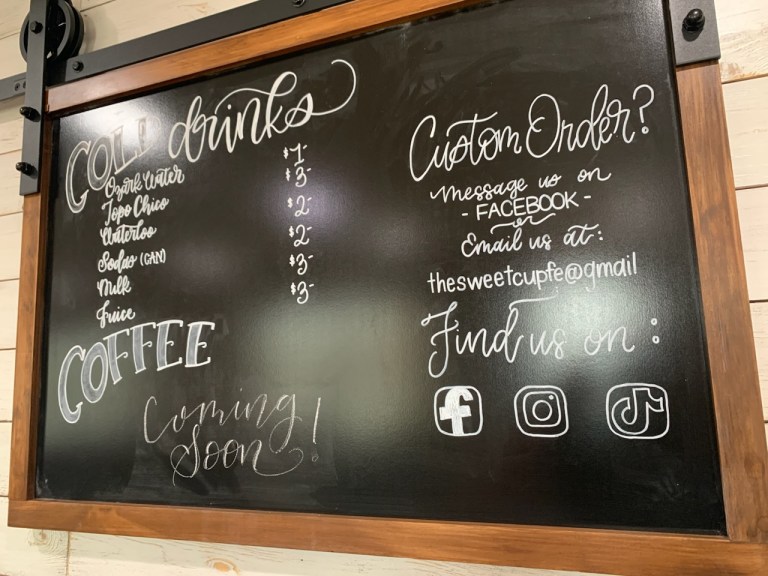 COLD drinks
Ozark Water $1-
Topo Chico $3-
Waterloo $2-
Sodas (CAN) $2-
Milk $3-
Juice $3-
COFFEE
Coming
Soon!
Custom Order?
Message us on
- FACEBOOK -
or
Email us at:
thesweetcupfe@gmail
Find us on :